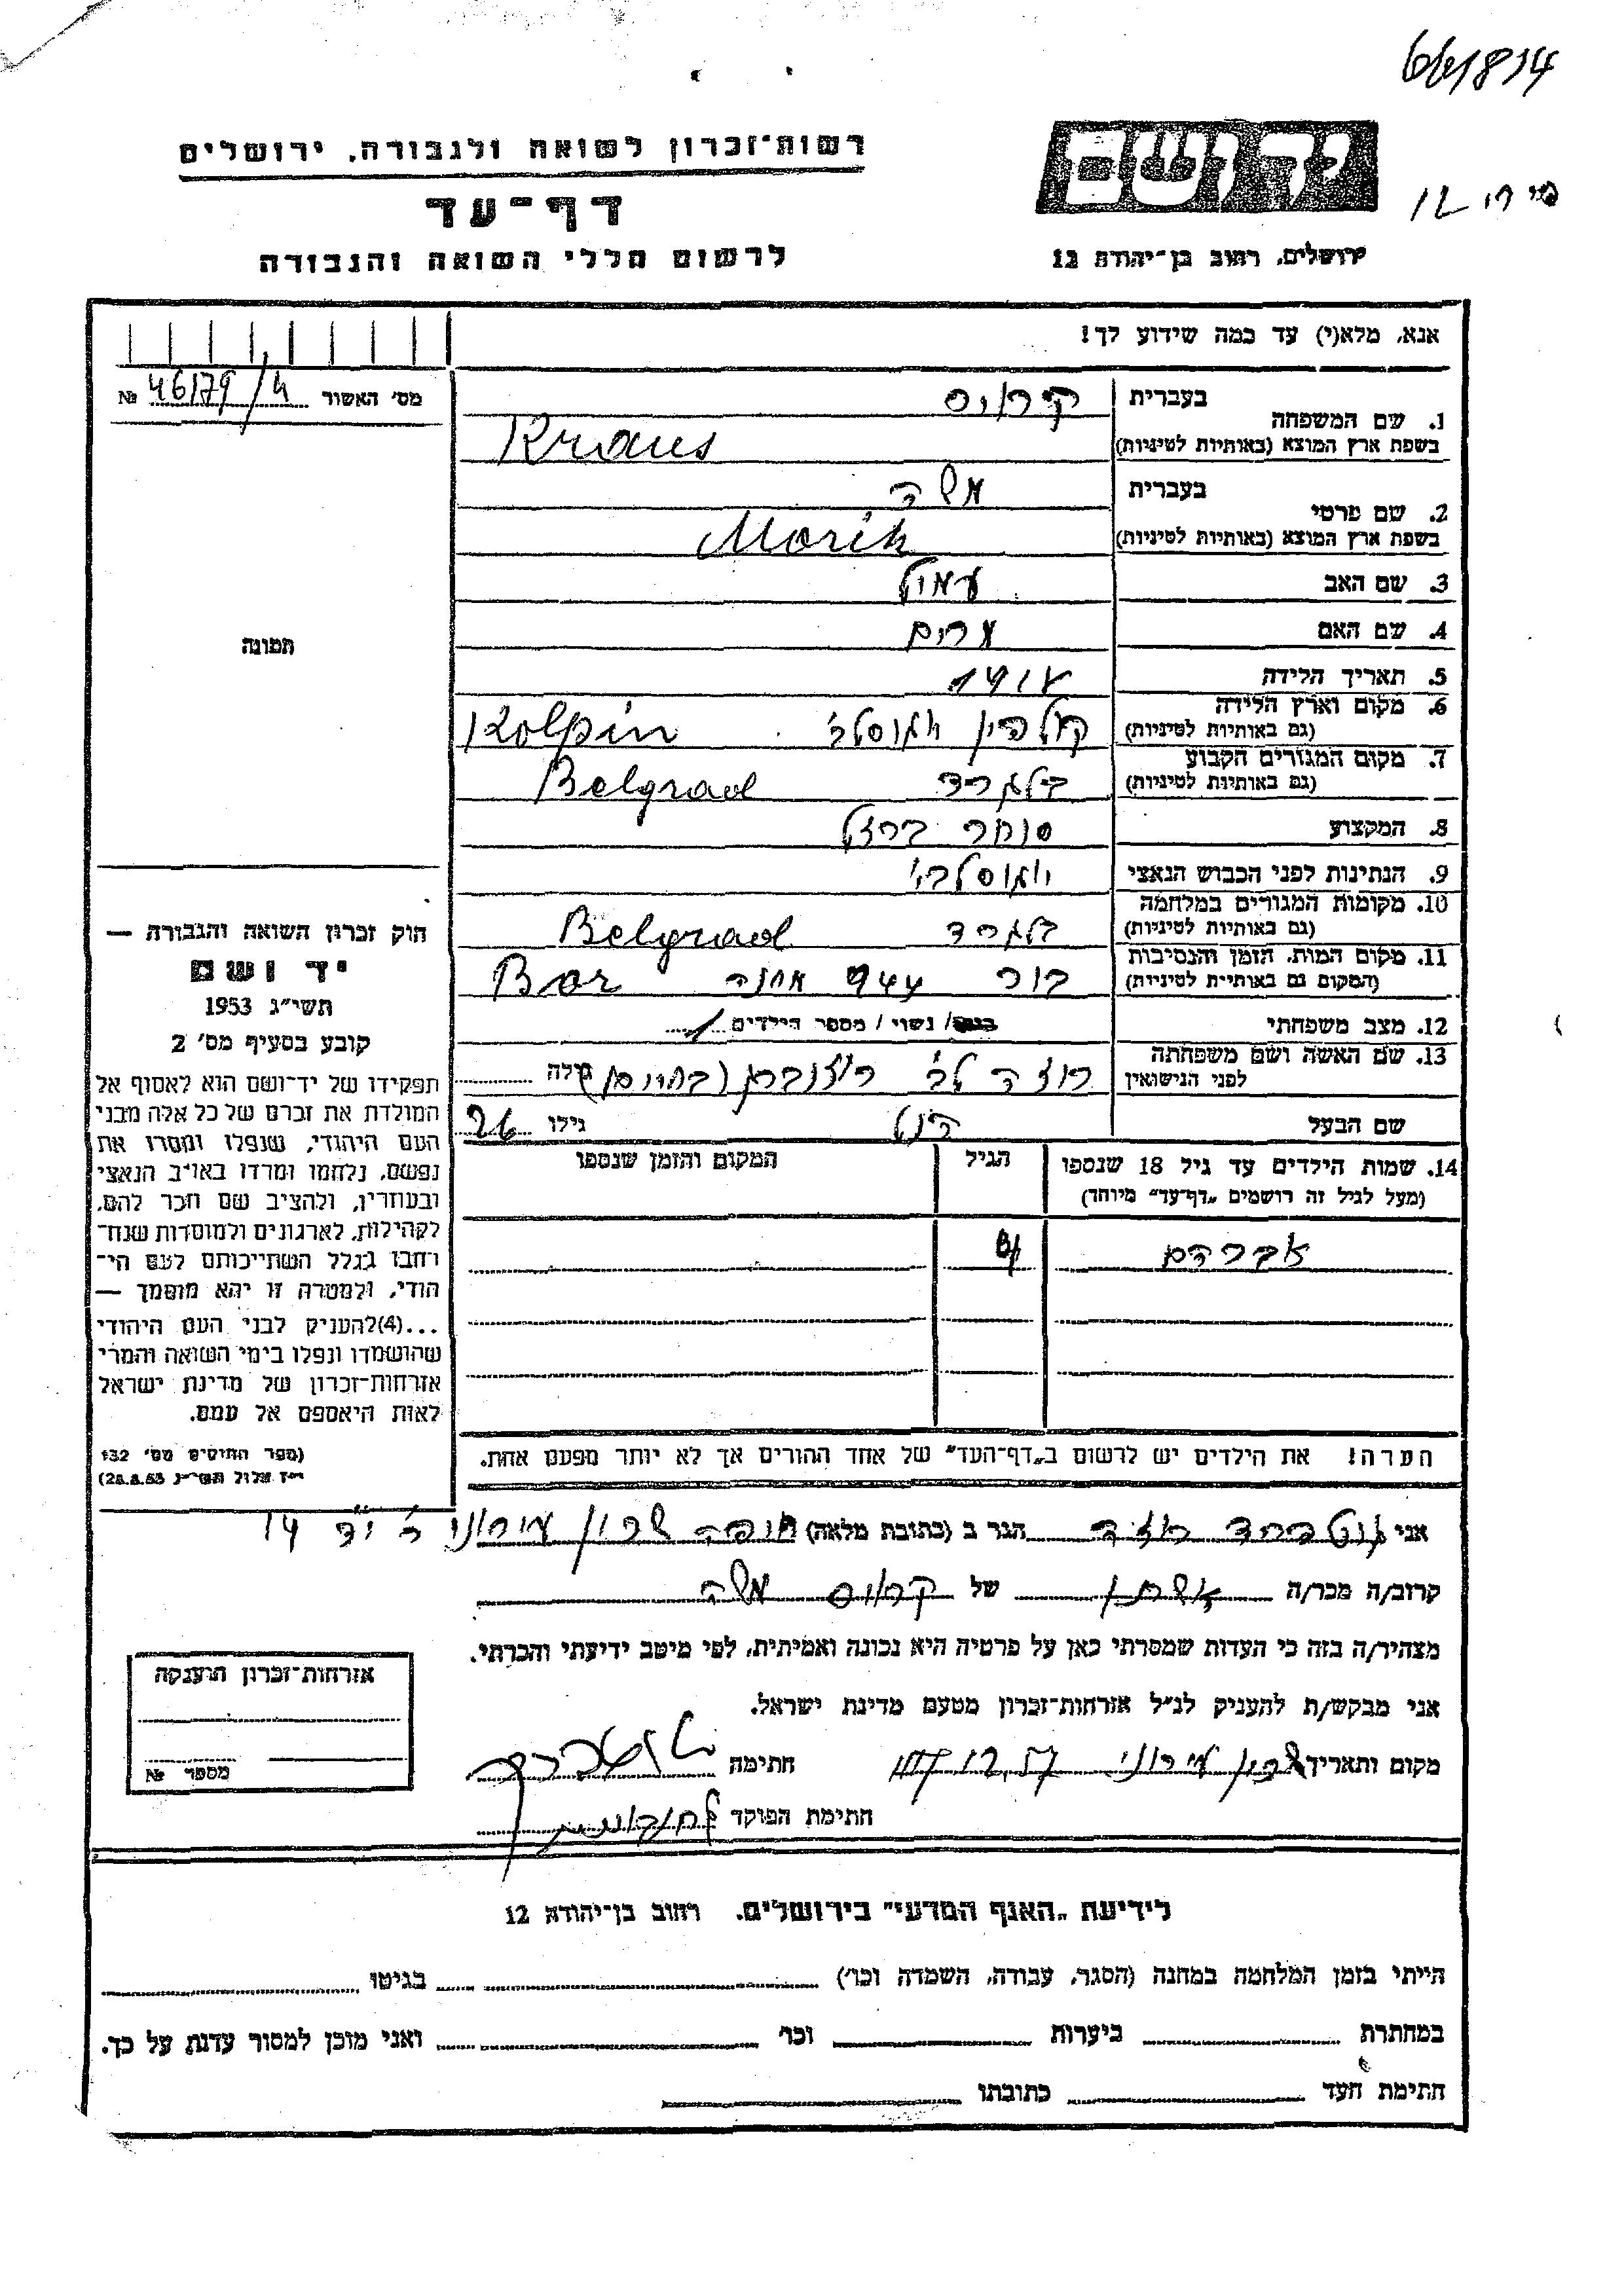 661834
רשות-זכרון לשואה ולגבורה, ירושלים
יד ושם
דף-עד
לרשום חללי השואה והגבורה
ירושלים, רחוב בן-יהודה 12
אנא, מלא(י) עד כמה שידוע לך!
מס' האשור № 46179/4
בעברית קראוס
1. שם המשפחה
בשפת ארץ המוצא (באותיות לטיניות) Kraus
בעברית משה
2. שם פרטי
בשפת ארץ המוצא (באותיות לטיניות) Morih
3. שם האב
4. שם האם מרים
תמונה
5. תאריך הלידה
6. מקום וארץ הלידה
(גם באותיות לטיניות) קולפין יוגוסלב' Kolpin
7. מקום המגורים הקבוע
(גם באותיות לטיניות) בלגרד Belgrad
8. המקצוע סוחר ברזל
9. הנתינות לפני הכבוש הנאצי יוגוסלבי
10. מקומות המגורים במלחמה
(גם באותיות לטיניות) בלגרד Belgrad
11. מקום המות, הזמן והנסיבות
(המקום גם באותיות לטיניות) בור מחנה Bor
12. מצב משפחתי רווק / נשוי / מספר הילדים 1
13. שם האשה ושם משפחתה
לפני הנישואין רוזה לב' גילה
שם הבעל גילו 26
14. שמות הילדים עד גיל 18 שנספו
(מעל לגיל זה רושמים „דף-עד" מיוחד)
הגיל
המקום והזמן שנספו
אברהם
הערה! את הילדים יש לרשום ב„דף-העד" של אחד ההורים אך לא יותר מפעם אחת.
חוק זכרון השואה והגבורה —
יד ושם
תשי"ג 1953
קובע בסעיף מס' 2
תפקידו של יד-ושם הוא לאסוף אל
המולדת את זכרם של כל אלה מבני
העם היהודי, שנפלו ומסרו את
נפשם, נלחמו ומרדו באויב הנאצי
ובעוזריו, ולהציב שם וזכר להם,
לקהילות, לארגונים ולמוסדות שנח-
רבו בגלל השתייכותם לעם הי-
הודי, ולמטרה זו יהא מוסמך —
...(4) להעניק לבני העם היהודי
שהושמדו ונפלו בימי השואה והמרי
אזרחות-זכרון של מדינת ישראל
לאות היאספם אל עמם.
(ספר החוקים מס' 132
י"ז אלול תשי"ג 28.8.53)
אני רוזה הגר ב (כתובת מלאה) חיפה שכון עירוני ה' יד 14
קרוב/ה מכר/ה אשתו של קראוס משה
מצהיר/ה בזה כי העדות שמסרתי כאן על פרטיה היא נכונה ואמיתית, לפי מיטב ידיעתי והכרתי.
אני מבקש/ת להעניק לנ"ל אזרחות-זכרון מטעם מדינת ישראל.
מקום ותאריך שכון עירוני חתימה
חתימת הפוקד
אזרחות-זכרון הוענקה
מספר №
לידיעת „האגף המדעי" בירושלים, רחוב בן-יהודה 12
הייתי בזמן המלחמה במחנה (הסגר, עבודה, השמדה וכו') בגיטו
במחתרת ביערות וכו' ואני מוכן למסור עדות על כך.
חתימת העד כתובתו